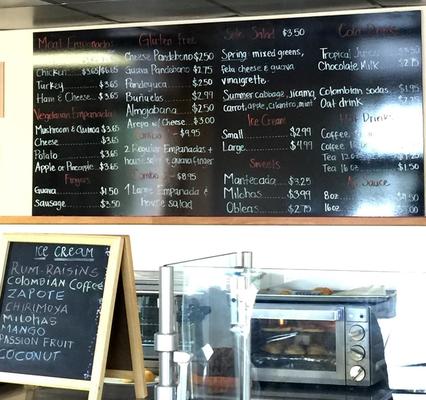 Meat Empanadas
Chicken $3.65/$6.65
Turkey $3.65
Ham & Cheese $3.65
Vegetarian Empanadas
Mushroom & Quinoa $3.65
Cheese $3.65
Potato $3.65
Apple or Pineapple $3.65
Fingers
Guava $1.50
Sausage $3.50
Gluten Free
Cheese Pandebono $2.50
Guava Pandebono $2.75
Pandeyuca $2.50
Buñuelos $2.99
Almojabana $2.50
Arepa w/ Cheese $3.00
Combo - $9.95
2 Regular Empanadas +
house salad & guava finger
Combo - $8.95
1 Large Empanada &
house salad
Side Salad $3.50
Spring mixed greens,
feta cheese & guava
vinaigrette
Summer cabbage, jicama,
carrot, apple, cilantro, mint
Ice Cream
Small $2.99
Large $4.99
Sweets
Mantecada $3.25
Milhojas $3.99
Obleas $2.75
Cold Drinks
Tropical Juices
Chocolate Milk $2.75
Colombian sodas $1.95
Oat drink $2.75
Hot Drinks
Coffee
Coffee
Tea 12oz
Tea 16oz $1.50
Sauce
8oz
16oz
ICE CREAM
RUM-RAISINS
COLOMBIAN COFFEE
ZAPOTE
CHIRIMOYA
MILOJAS
MANGO
PASSION FRUIT
COCONUT